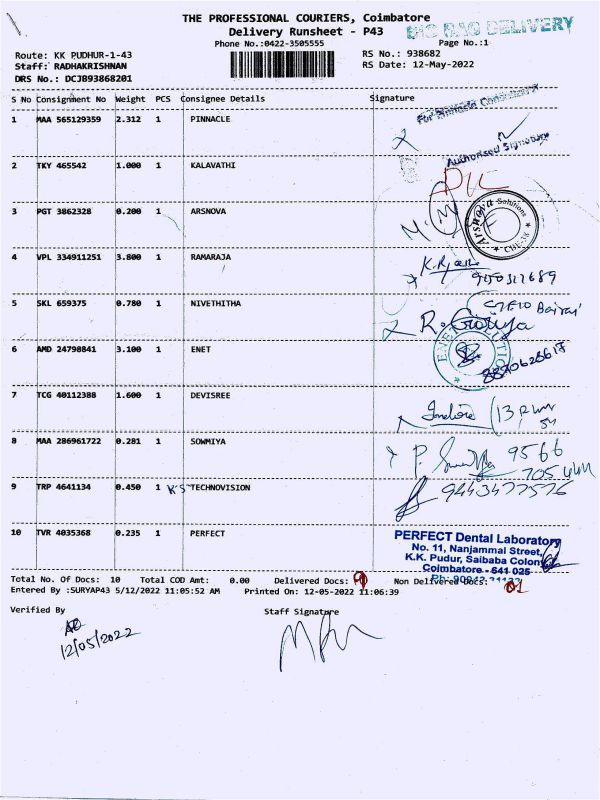 THE PROFESSIONAL COURIERS, Coimbatore
BIG BAG DELIVERY
Delivery Runsheet - P43
Phone No.:0422-3505555
Page No.:1
Route: KK PUDHUR-1-43
RS No.: 938682
Staff: RADHAKRISHNAN
RS Date: 12-May-2022
DRS No.: DCJB93868201
S No Consignment No Weight PCS Consignee Details Signature
1 MAA 565129359 2.312 1 PINNACLE
For Pinnacle
Authorised Signature
2 TKY 465542 1.000 1 KALAVATHI
3 PGT 3862328 0.200 1 ARSNOVA
Solutions
CBE-38
4 VPL 334911251 3.800 1 RAMARAJA
5 SKL 659375 0.780 1 NIVETHITHA
6 AMD 24798841 3.100 1 ENET
7 TCG 40112388 1.600 1 DEVISREE
8 MAA 286961722 0.281 1 SOWMIYA
P.
9566
9 TRP 4641134 0.450 1 K'S TECHNOVISION
10 TVR 4035368 0.235 1 PERFECT
PERFECT Dental Laboratory
No. 11, Nanjammal Street,
K.K. Pudur, Saibaba Colony
Coimbatore - 641 025
Total No. Of Docs: 10 Total COD Amt: 0.00 Delivered Docs: Non Delivered Docs: 01
Entered By :SURYAP43 5/12/2022 11:05:52 AM Printed On: 12-05-2022 11:06:39
Verified By Staff Signature
12/05/2022